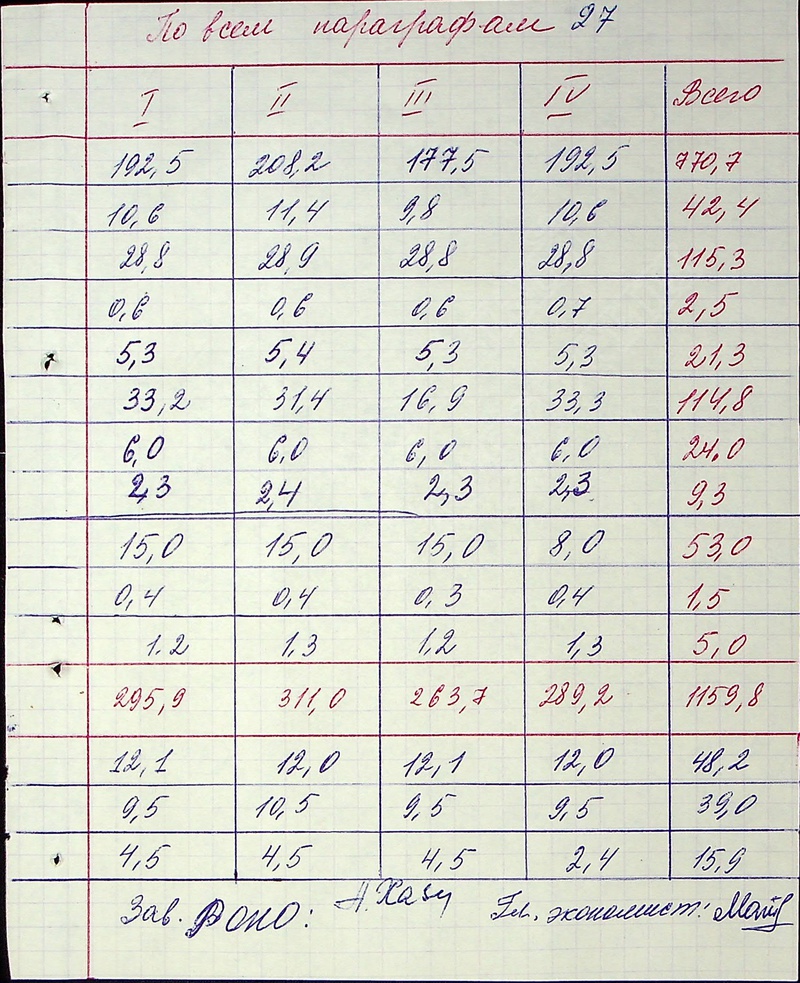 По всем параграфам 27
I II III IV Всего
192,5 208,2 177,5 192,5 770,7
10,6 11,4 9,8 10,6 42,4
28,8 28,9 28,8 28,8 115,3
0,6 0,6 0,6 0,7 2,5
5,3 5,4 5,3 5,3 21,3
33,2 31,4 16,9 33,3 114,8
6,0 6,0 6,0 6,0 24.0
2,3 2,4 2,3 2,3 9,3
15,0 15,0 15,0 8,0 53,0
0,4 0,4 0,3 0,4 1,5
1.2 1,3 1,2 1,3 5,0
295,9 311,0 263,7 289,2 1159,8
12,1 12,0 12,1 12,0 48,2
9,5 10,5 9,5 9,5 39,0
4,5 4,5 4,5 2,4 15,9
Зав. РОНО: Гл. экономист: